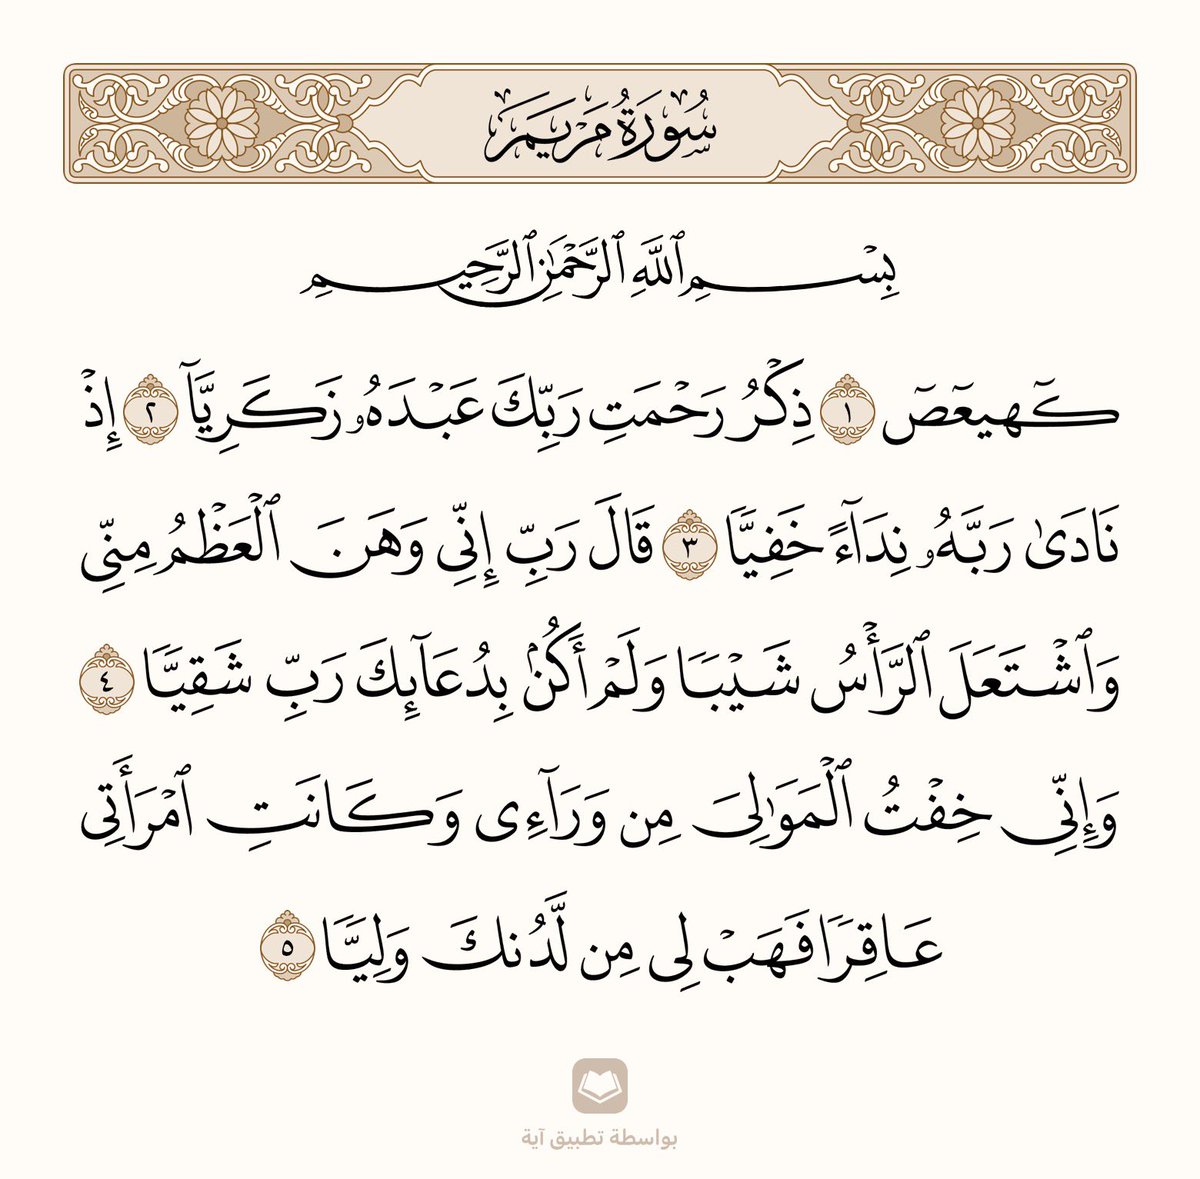 سُورَةُ مَرۡيَمَ
بِسۡمِ ٱللَّهِ ٱلرَّحۡمَٰنِ ٱلرَّحِيمِ
كٓهيعٓصٓ ١ ذِكۡرُ رَحۡمَتِ رَبِّكَ عَبۡدَهُۥ زَكَرِيَّآ ٢ إِذۡ
نَادَىٰ رَبَّهُۥ نِدَآءً خَفِيّٗا ٣ قَالَ رَبِّ إِنِّي وَهَنَ ٱلۡعَظۡمُ مِنِّي
وَٱشۡتَعَلَ ٱلرَّأۡسُ شَيۡبٗا وَلَمۡ أَكُنۢ بِدُعَآئِكَ رَبِّ شَقِيّٗا ٤
وَإِنِّي خِفۡتُ ٱلۡمَوَٰلِيَ مِن وَرَآءِي وَكَانَتِ ٱمۡرَأَتِي
عَاقِرٗا فَهَبۡ لِي مِن لَّدُنكَ وَلِيّٗا ٥
بواسطة تطبيق آية